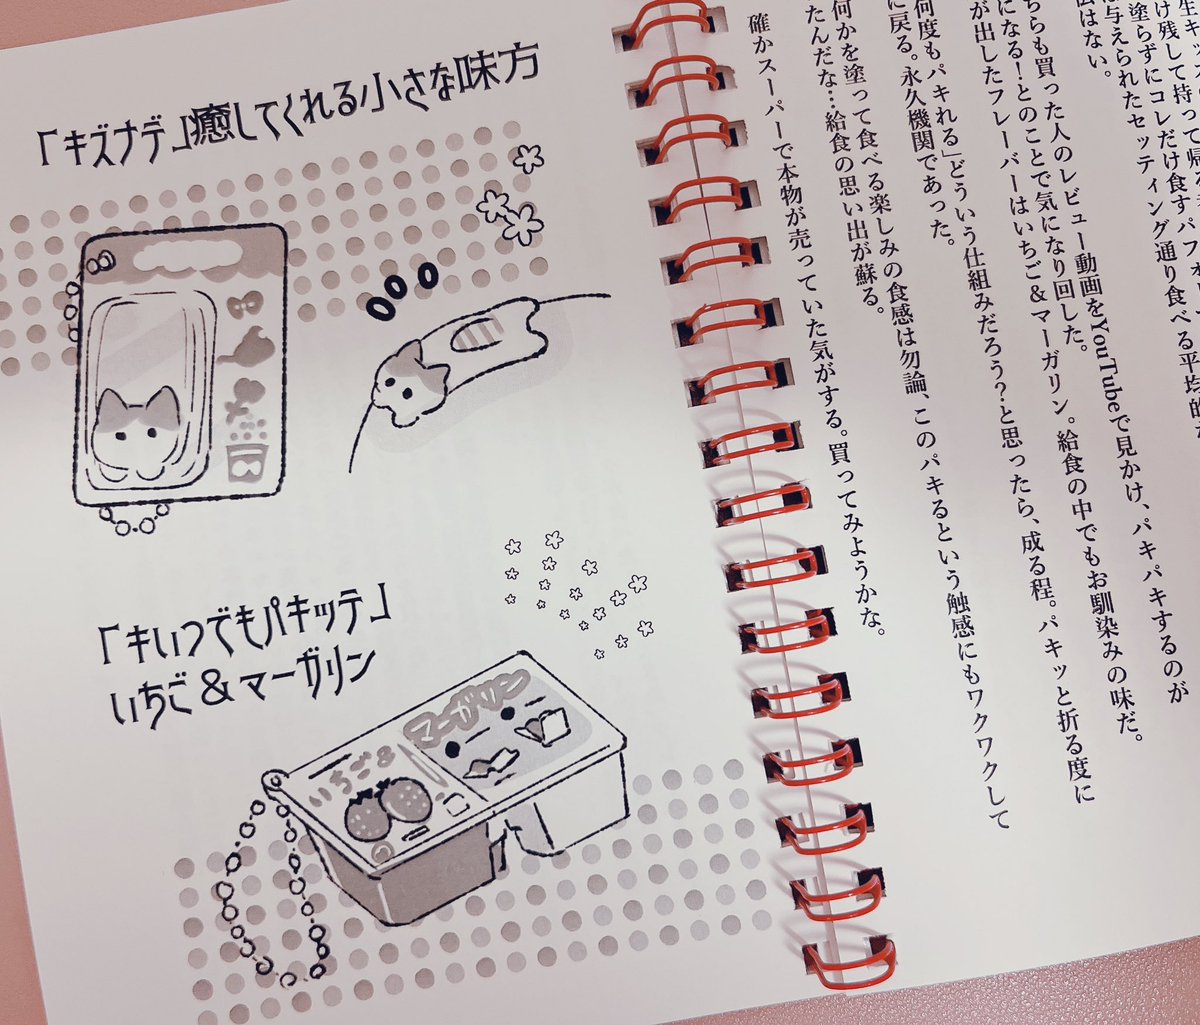 け残して持って帰る
塗らずにコレだけ食すパフォ
与えられたセッティング通り食べる平均的な
はない。
ちらも買った人のレビュー動画をYouTubeで見かけ、パキパキするのが
になる!とのことで気になり回した。
が出したフレーバーはいちご&マーガリン。給食の中でもお馴染みの味だ。
何度もパキれる」どういう仕組みだろう?と思ったら、成る程。パキッと折る度に
に戻る。永久機関であった。
何かを塗って食べる楽しみの食感は勿論、このパキるという触感にもワクワクして
たんだな…給食の思い出が蘇る。
確かスーパーで本物が売っていた気がする。買ってみようかな。
「キズナデ」癒してくれる小さな味方
「キいつでもパキッテ」
いちご&マーガリン
いちご&
マーガリン